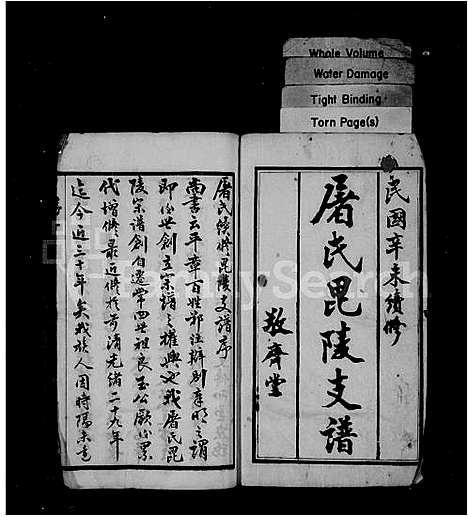 Whole Volume
Water Damage
Tight Binding
Torn Page(s)
民國辛未續修
屠氏毘陵支譜
敬齊堂
屠氏續修毘陵支譜序
尚書云平章百姓鄭注辨別章明之謂
即後世創立宗譜之權輿也我屠氏毘
陵宗譜創自遷常四世祖良玉公厥後累
代增修最近修於前清光緒二十九年
迄今近三十年矣我族人因時陽未